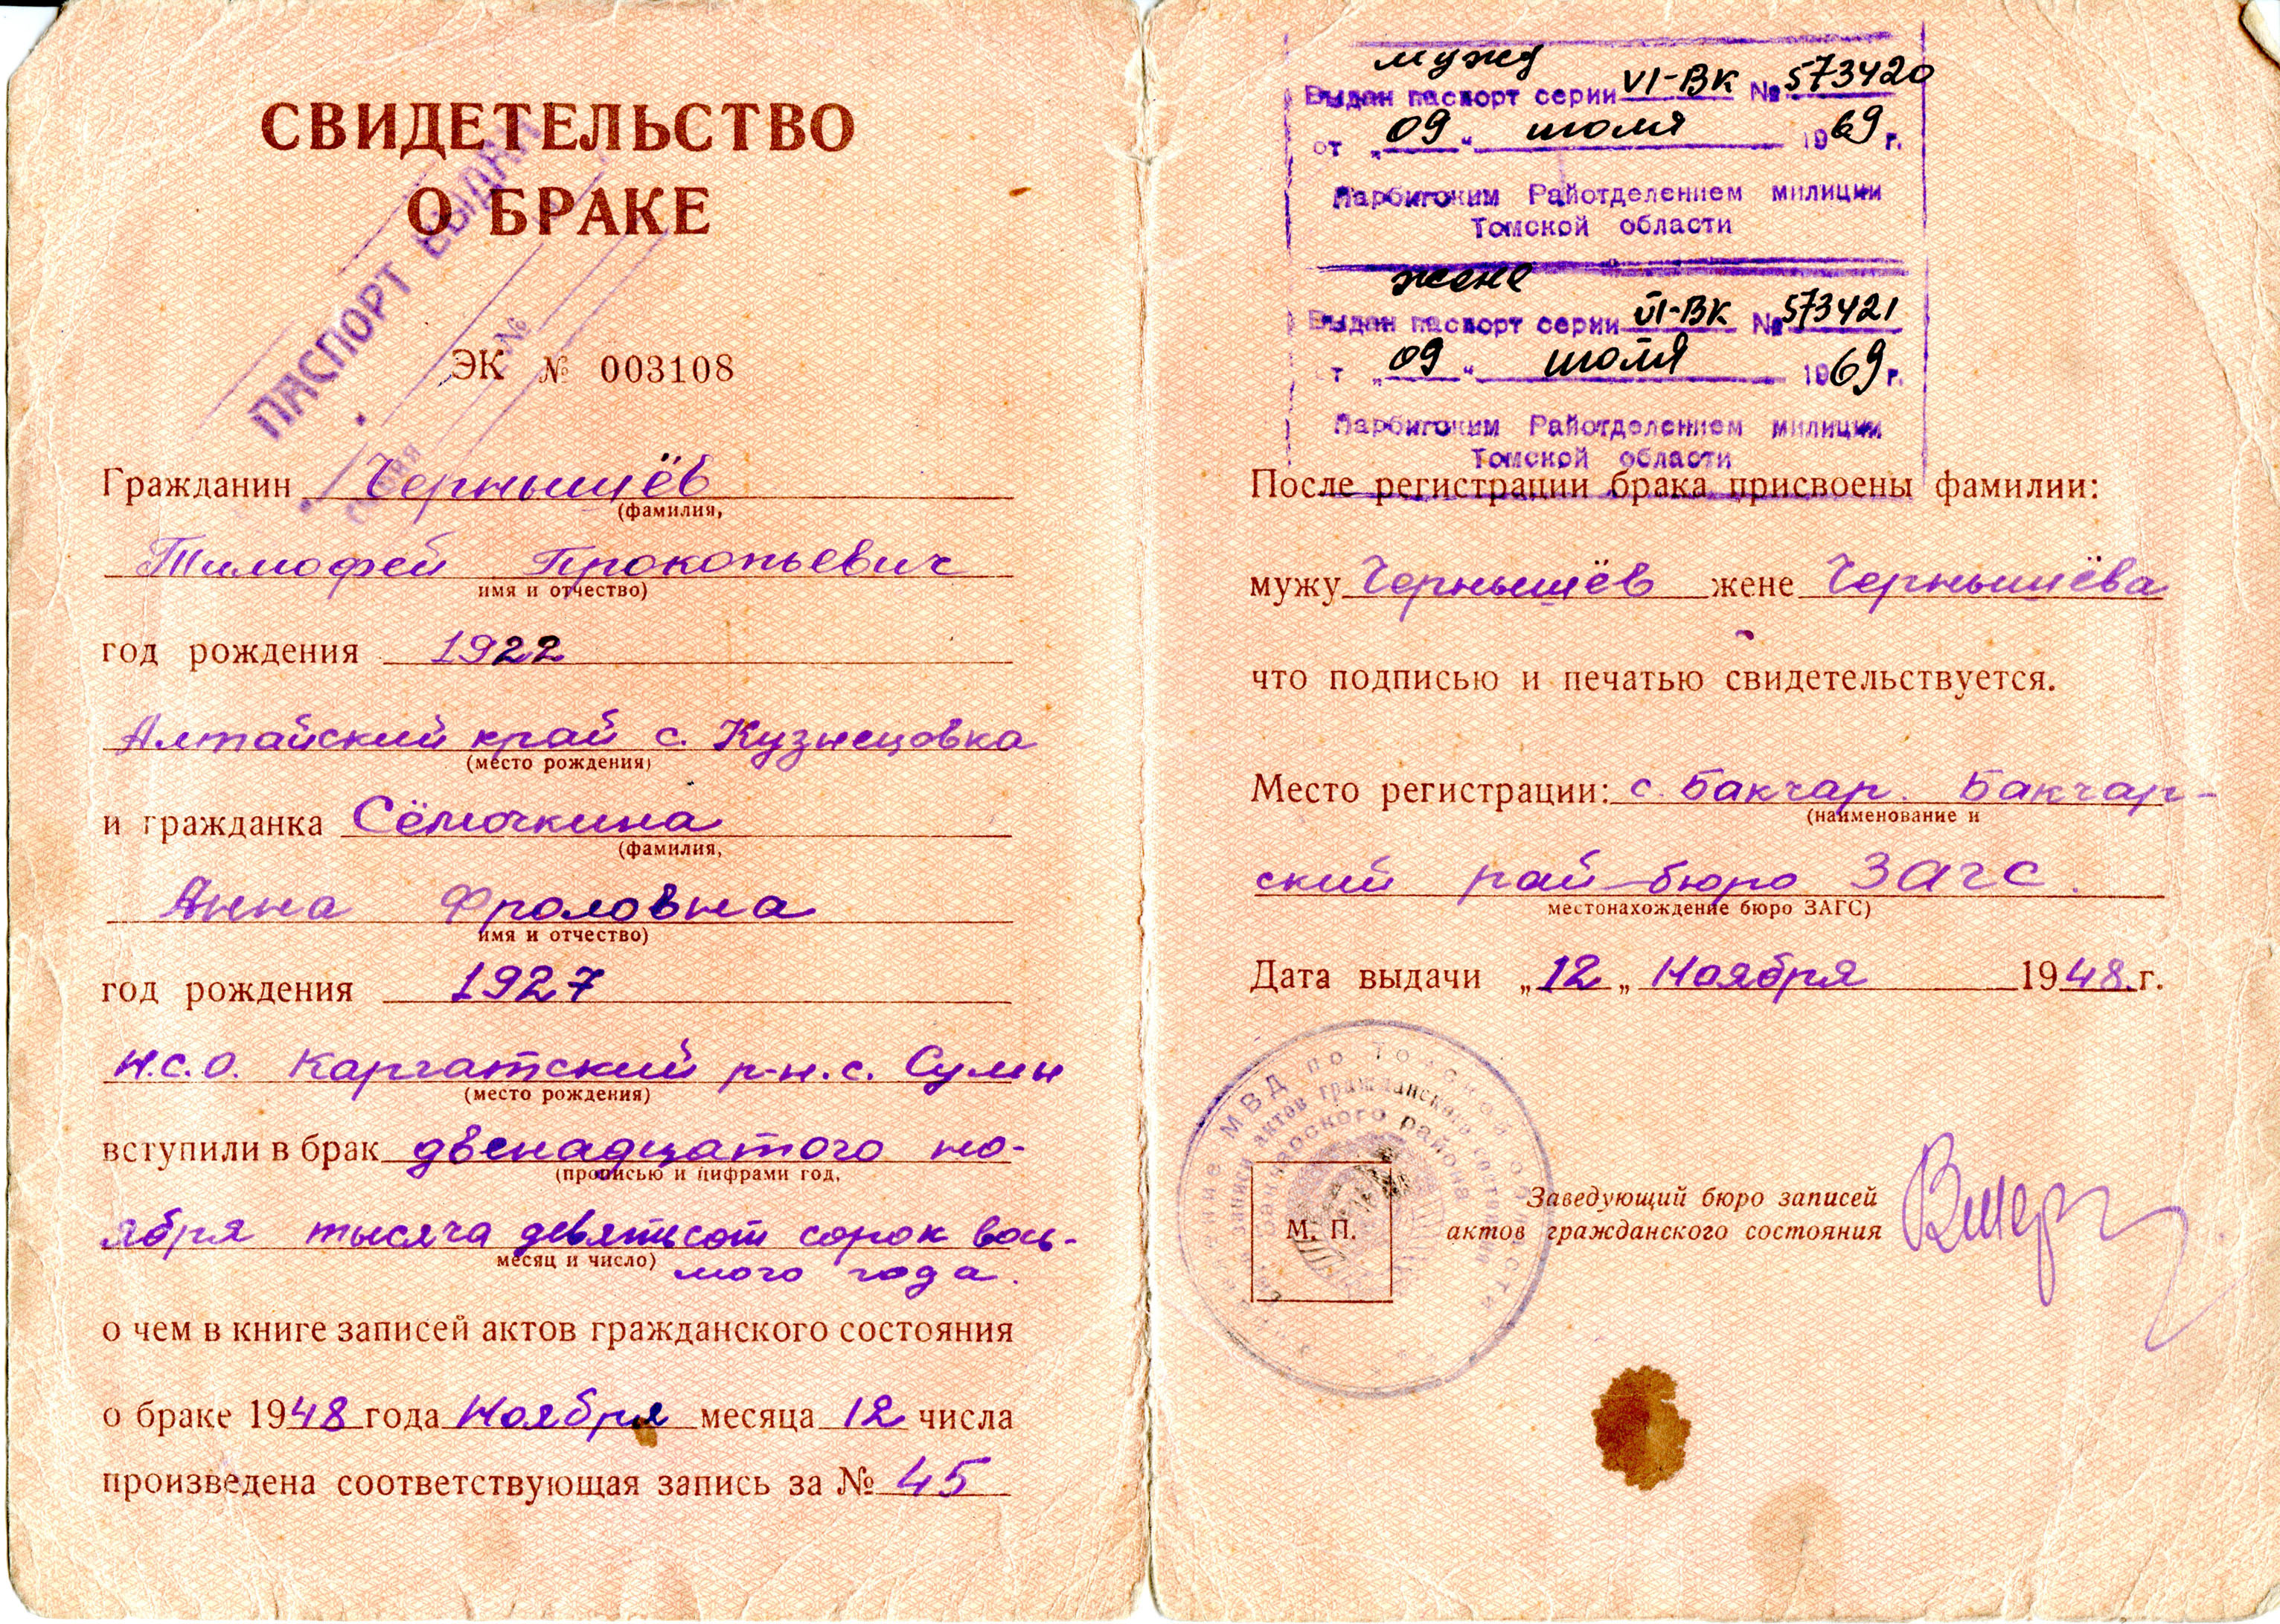 СВИДЕТЕЛЬСТВО
О БРАКЕ
ПАСПОРТ ВЫДАН
серия №
ЭК № 003108
Гражданин Чернышёв
(фамилия,
Тимофей Прокопьевич
имя и отчество)
год рождения 1922
Алтайский край с. Кузнецовка
(место рождения)
и гражданка Сёмочкина
(фамилия,
Анна Фроловна
имя и отчество)
год рождения 1927
Н.С.О. Каргатский р-н. с. Сумы
(место рождения)
вступили в брак двенадцатого но-
(прописью и цифрами год,
ября тысяча девятьсот сорок вось-
месяц и число)
мого года.
о чем в книге записей актов гражданского состояния
о браке 1948 года Ноября месяца 12 числа
произведена соответствующая запись за № 45
мужу
Выдан паспорт серии VI-ВК № 573420
от „09“ июля 1969 г.
Парбигским Райотделением милиции
Томской области
жене
Выдан паспорт серии VI-ВК № 573421
от „09“ июля 1969 г.
Парбигским Райотделением милиции
Томской области
После регистрации брака присвоены фамилии:
мужу Чернышёв жене Чернышёва
что подписью и печатью свидетельствуется.
Место регистрации: с. Бакчар. Бакчар-
(наименование и
ский рай-бюро ЗАГС.
местонахождение бюро ЗАГС)
Дата выдачи „12„ Ноября 1948. г.
МВД по Томской области
записи актов гражданского состояния
Бакчарского района
М. П.
Заведующий бюро записей
актов гражданского состояния